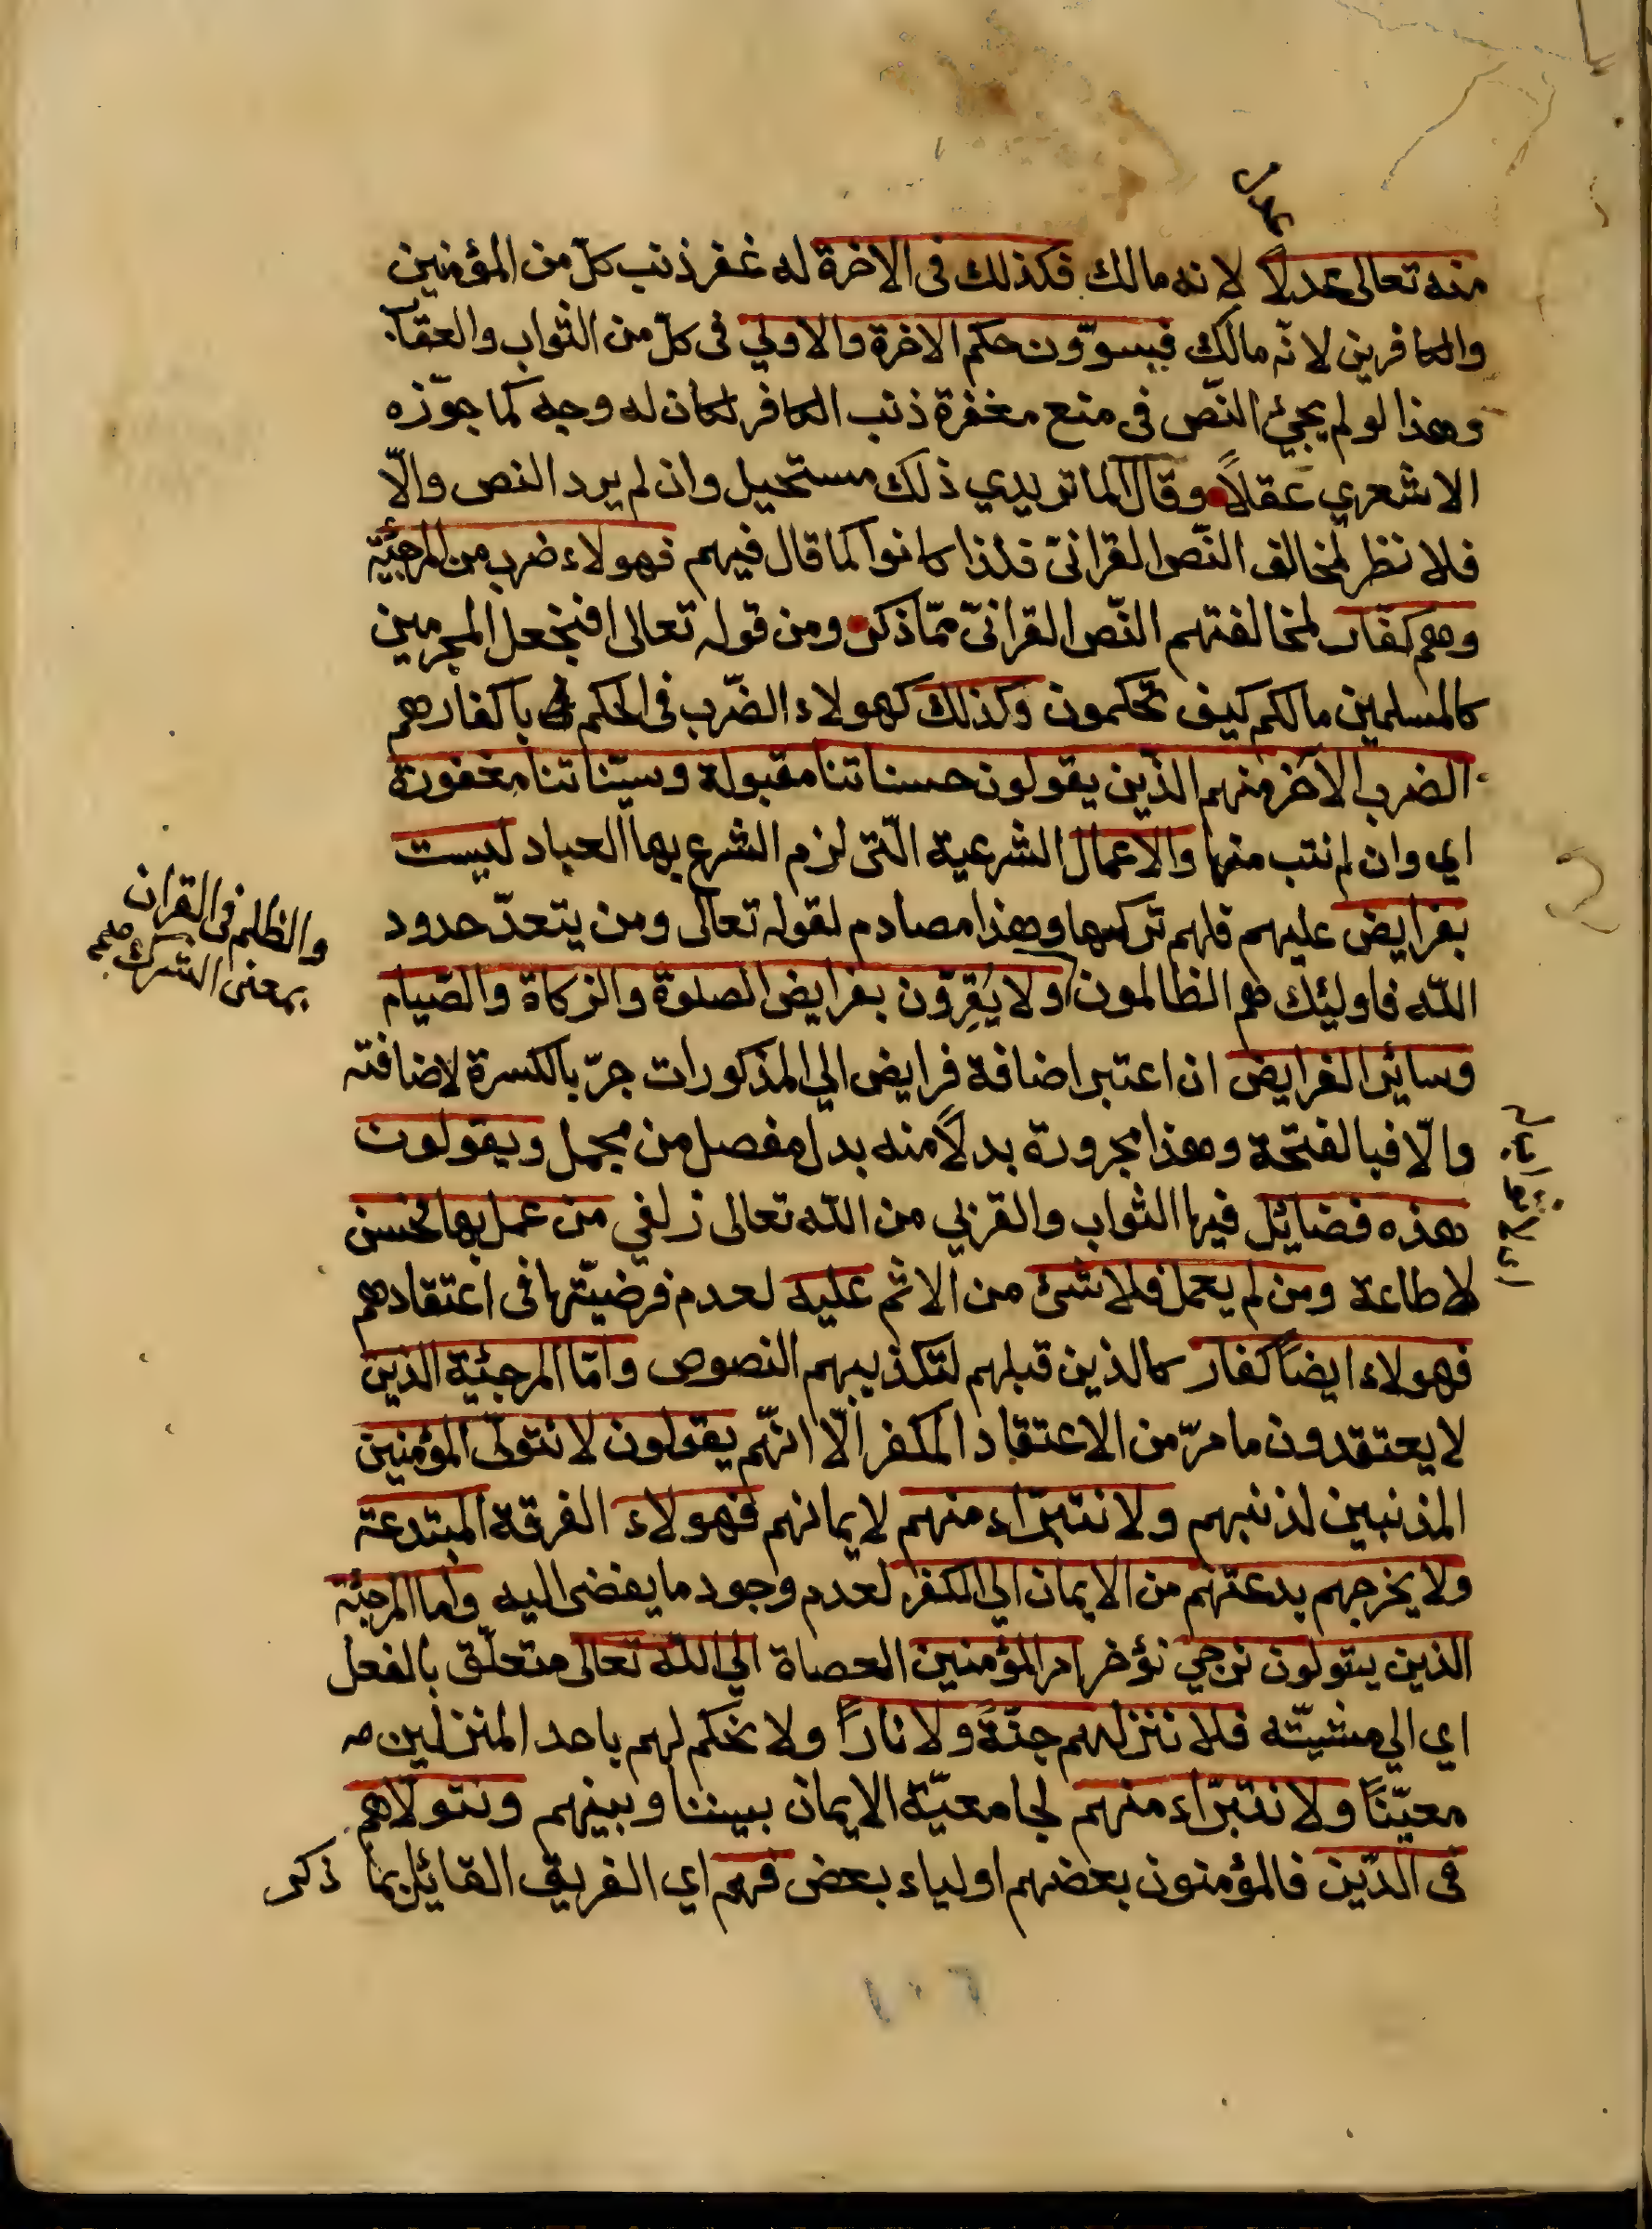 عدل
منه تعالى عدلا لانه مالك فكذلك فى الاخرة له غفر ذنب كلّ من المؤمنين
والكافرين لانّه مالك فيسوّون حكم الاخرة والاولي فى كلّ من الثواب والعقاب
وهذا لو لم يجئ النّص فى منع مغفرة ذنب الكافر لكان له وجه كما جوّزه
الاشعري عقلاً وقال الماتريدي ذلك مستحيل وان لم يرد النص والّا
فلا نظر لمخالف النّص القرانىّ فلذا كانوا كما قال فيهم فهولاء ضرب من المرجئة
وهم كفار لمخالفتهم النّص القرانىّ ممّا ذكر ومن قوله تعالى افنجعل المجرمين
كالمسلمين مالكم كيف تحكمون وكذلك كهولاء الضّرب فى الحكم باكفارهم
الضرب الآخر منهم الذين يقولون حسناتنا مقبولة وسيّئاتنا مغفورة
اي وان لم نتب منها والاعمال الشرعية الّتى لزم الشرع بها العباد ليست
بفرايض عليهم فلهم تركها وهذا مصادم لقوله تعالى ومن يتعدّ حدود
والظلم فى القران
بمعنى الشرك
اللّه فاولئك هم الظالمون ولا يُقِرّون بفرايض الصلوة والزكاة والصّيام
وسائر الفرايض ان اعتبر اضافة فرايض الي المذكورات جرّ بالكسرة لاضافته
والّا فبالفتحة وهذا مجرورة بدلاً منه بدل مفصل من مجمل ويقولون
هذه فضائل فيها الثواب والقربي من اللّه تعالى زلفي من عمل بها فحسن
لاطاعة ومن لم يعمل فلا شئ من الاثم عليه لعدم فرضيّتها فى اعتقادهم
فهولاء ايضاً كفار كالذين قبلهم لتكذيبهم النصوص وامّا المرجئية الذين
لا يعتقدون ما مرّ من الاعتقاد المكفر الّا انّهم يقولون لا نتولّى المؤمنين
المذنبين لذنبهم ولا نتبرّاء منهم لايمانهم فهولاء الفرقة المبتدعة
ولا يخرجهم بدعتهم من الايمان الي الكفر لعدم وجود ما يفضى اليه واما المرجئة
الذين يتولون نرجي نؤخر امر المؤمنين العصاة الي اللّه تعالى متعلّق بالفعل
اي الي مشيّته فلا ننزلهم جنّةً ولا ناراً ولا نحكم لهم باحد المنزلين
معيّناً ولا نتبرّاء منهم لجامعيّة الايمان بيننا وبينهم ونتولّاهم
فى الدّين فالمؤمنون بعضهم اولياء بعض فهم اي الفريق القائل بما ذكر